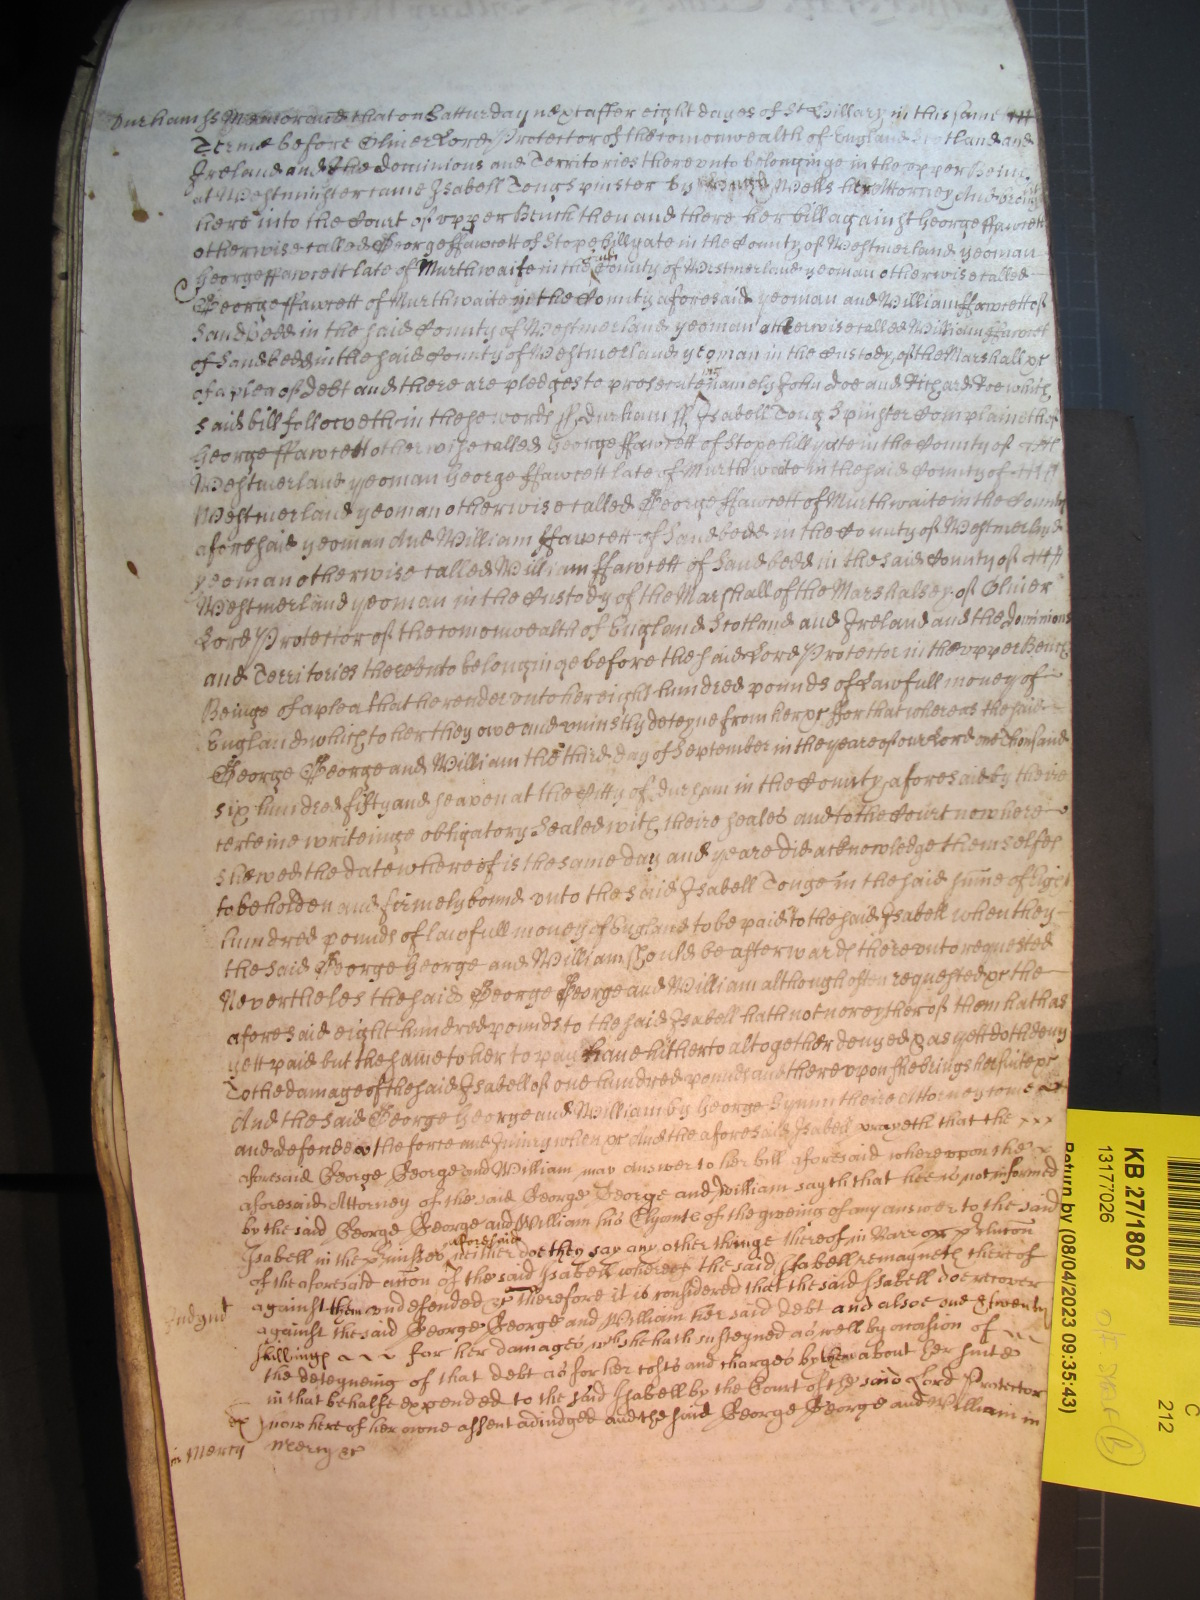 Durham ss Memorand that on Satturday next after eight dayes of St Hillary in this same
Terme before Oliver Lord Protector of the comonwealth of England Scotland and
Ireland and the dominions and Territories there unto belonginge in the upper Bench
at Westminster came Isabell Tong spinster by Wells her Attorney And brought
here into the Court of upper Bench then and there her bill against George ffawcett
otherwise called George ffawcett of Stopehillyate in the County of Westmerland yeoman
George ffawcett late of Murthwaite in the said County of Westmerland yeoman otherwise called
George ffawcett of Murthwaite in the County aforesaid yeoman and William ffawcett of
Sandbedd in the said County of Westmerland yeoman otherwise called William ffawcett
of Sandbedd in the said County of Westmerland yeoman in the Custody of the Marshall &c
of a plea of Debt and there are pledges to prosecute namely John Doe and Richard Roe which
said bill followeth in these words ss durham ss Isabell Tong Spinster Complaineth of
George ffawcett otherwise called George ffawcett of Stopehillyate in the County of
Westmerland yeoman George ffawcett late of Murthwaite in the said County of
Westmerland yeoman otherwise called George ffawcett of Murthwaite in the County
aforesaid yeoman And William ffawcett of Sandbedd in the County of Westmerland
yeoman otherwise called William ffawcett of Sandbedd in the said County of
Westmerland yeoman in the Custody of the Marshall of the Marshalsey of Oliver
Lord Protector of the comonwealth of England Scotland and Ireland and the dominions
and Territories thereunto belonginge before the said Lord Protector in the upper Bench
Beinge of a plea that he render unto her eight hundred pounds of Lawfull money of
England which to her they owe and uniustly deteyne from her &c ffor that whereas the said
George George and William the third day of September in the yeare of our Lord one thousand
six hundred fifty and seaven at the Citty of durham in the County aforesaid by theire
certeine writeinge obligatory Sealed with theire seales and to the Court now here
shewed the date whereof is the same day and yeare did acknowledge themselfes
to be holden and firmely bound unto the said Isabell Tonge in the said summe of Eight
hundred pounds of lawfull money of England to be paid to the said Isabell when they
the said George George and William should be afterwards thereunto requested
Nevertheles the said George George and William although often requested &c the
aforesaid eight hundred pounds to the said Isabell hath not nor eyther of them hath as
yett paid but the same to her to pay have hitherto altogether denyed & as yett doth deny
To the damage of the said Isabell of one hundred pounds and thereupon she brings her suite &c
And the said George George and William by George theire Attorney come
and defende the force and Iniury when &c And the aforesaid Isabell prayeth that the
aforesaid George George and William may answer to her bill aforesaid whereupon the
aforesaid Attorney of the said George George and William sayth that hee is not informed
by the said George George and William his Clyents of the giveing of any answer to the said
Isabell in the premisses neither doe they say any other thinge thereof in Barr or preclution
of the aforesaid action aforesaid of the said Isabell whereby the said Isabell remayneth thereof
against them undefended &c therefore it is considered that the said Isabell doe recover
Judgmt against the said George George and William her said debt and alsoe one & twenty
shillings for her damages wch she hath susteyned as well by occasion of
the deteyneing of that debt as for her costs and charges by her about her suite
in that behalfe expended to the said Isabell by the Court of the said Lord Protector
now here of her owne assent adiudged and the said George George and William in
in Mercy Mercy &c
KB 27/1802
13177026
Return by (08/04/2023 09:35:43)
C
212